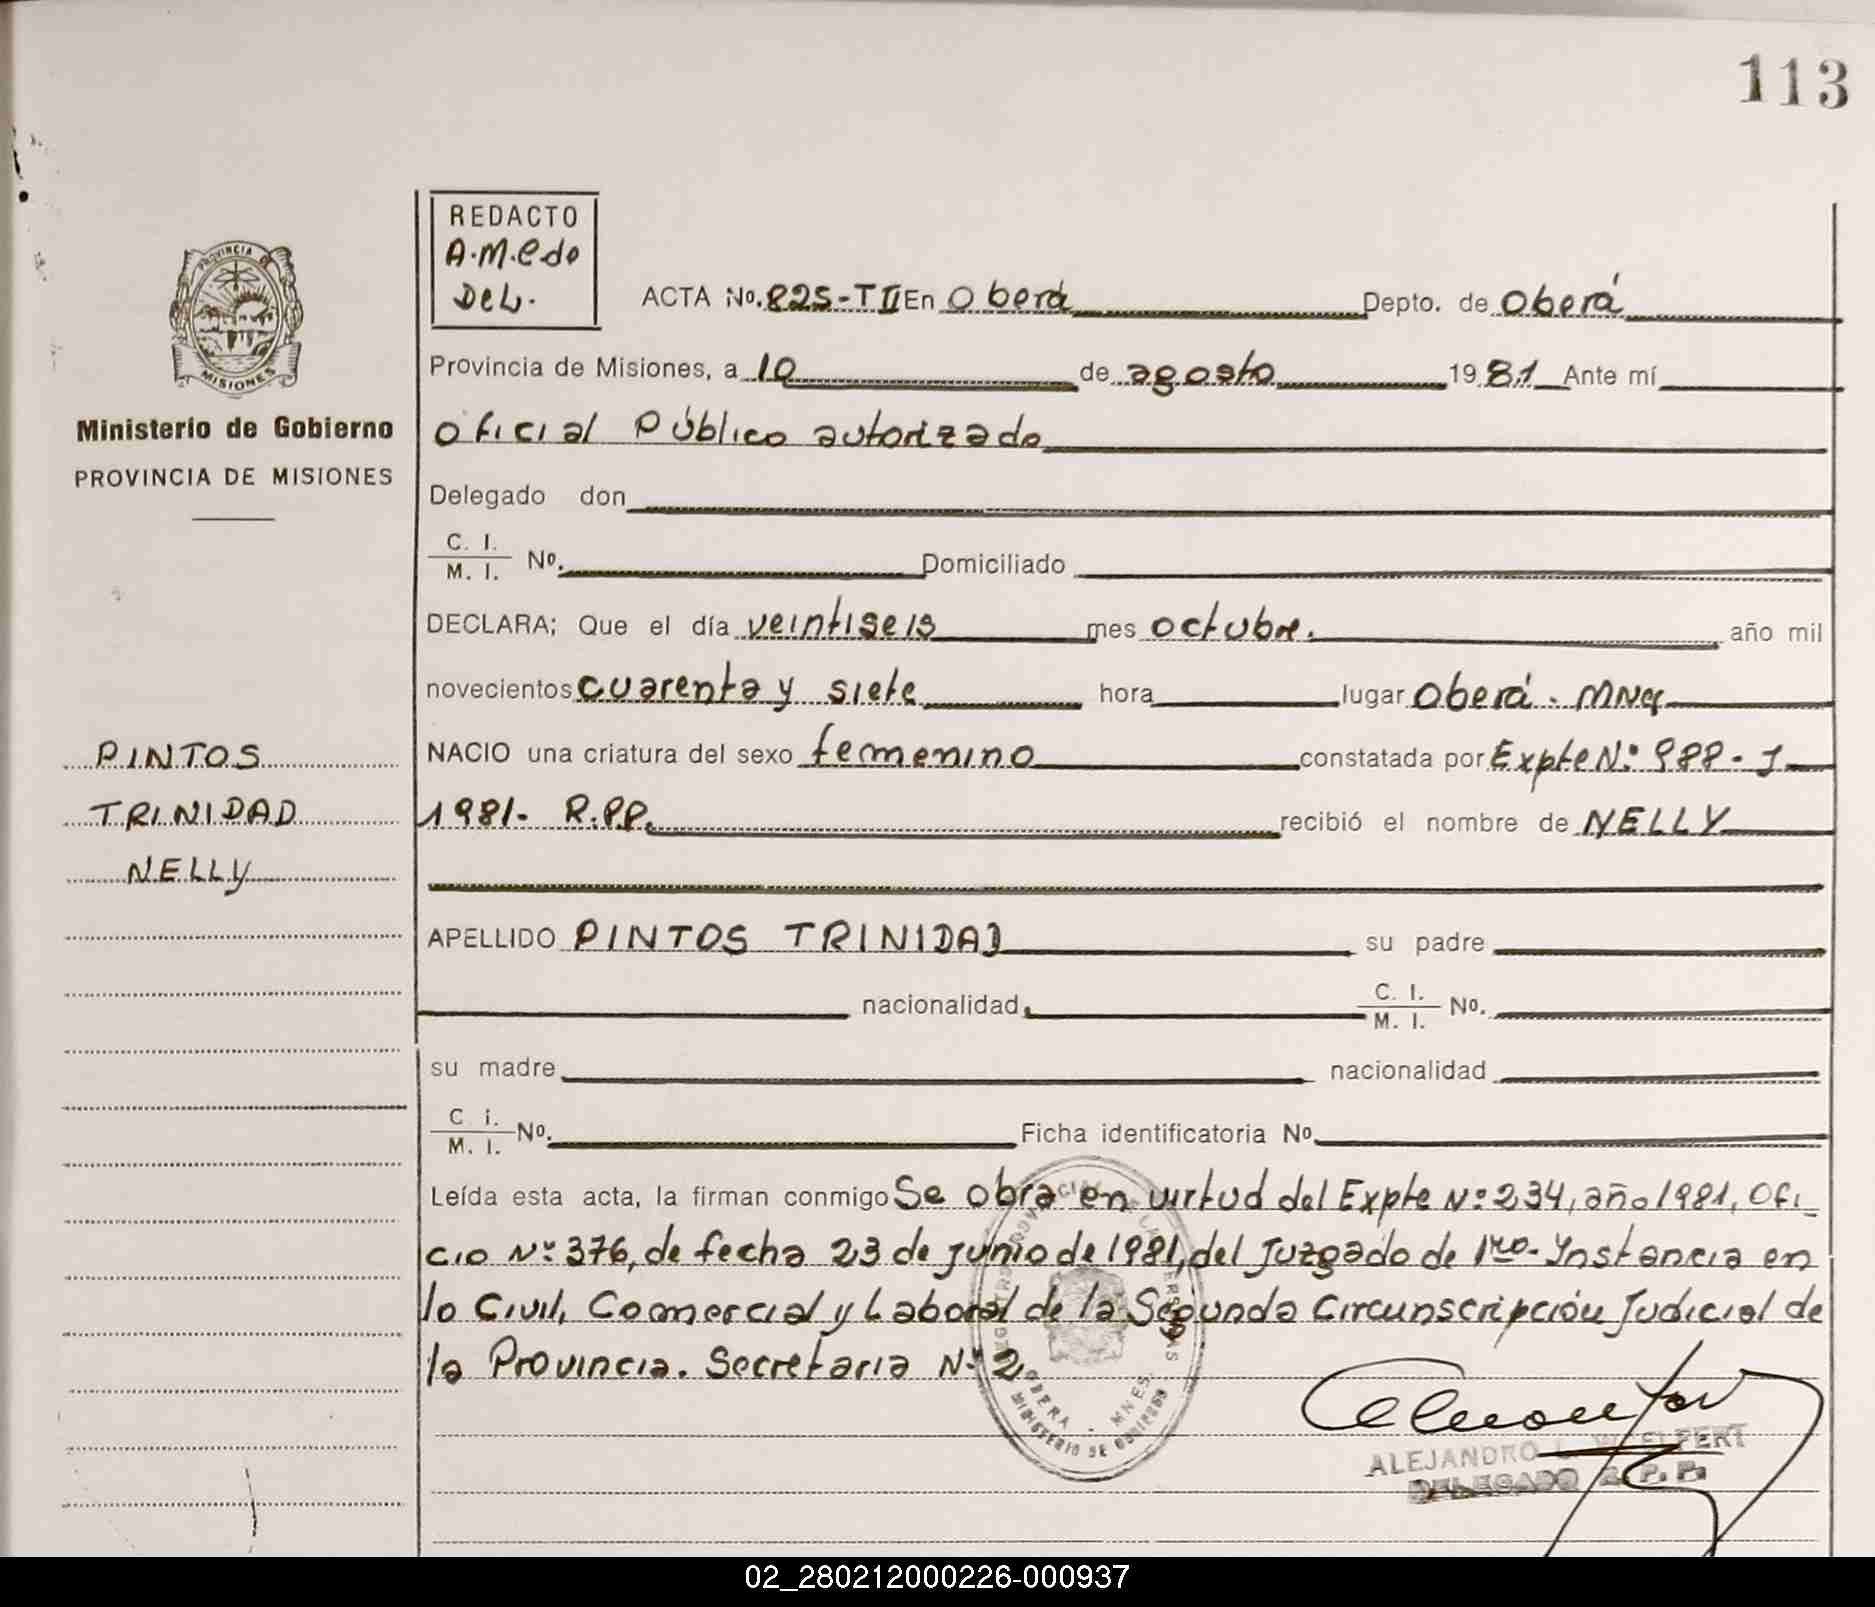 113
REDACTO
A.M.C do
DEL.
PROVINCIA DE
MISIONES
Ministerio de Gobierno
PROVINCIA DE MISIONES
ACTA No. 825-T II En Oberá Depto. de Oberá
Provincia de Misiones, a 10 de agosto 1981 Ante mí
Oficial Público autorizado
Delegado don
C. I.
M. I. No. Domiciliado
DECLARA; Que el día veintiseis mes octubre. año mil
novecientos cuarenta y siete hora lugar Oberá. MNes
PINTOS
TRINIDAD
NELLY
NACIO una criatura del sexo femenino constatada por Expte Nº 988-J
1981- R.PP. recibió el nombre de NELLY
APELLIDO PINTOS TRINIDAD su padre
nacionalidad C. I.
M. I. No.
su madre nacionalidad
C i.
M. I. No. Ficha identificatoria No
Leída esta acta, la firman conmigo Se obra en virtud del Expte Nº 234, año 1981, Ofi_
cio Nº 376, de fecha 23 de junio de 1981, del Juzgado de 1ra. Instancia en
lo Civil, Comercial y Laboral de la Segunda Circunscripción Judicial de
la Provincia. Secretaria Nº 2.
OBERA - MNES.
MINISTERIO DE GOBIERNO
ALEJANDRO L. WELPERT
DELEGADO R. P. P.
02_280212000226-000937